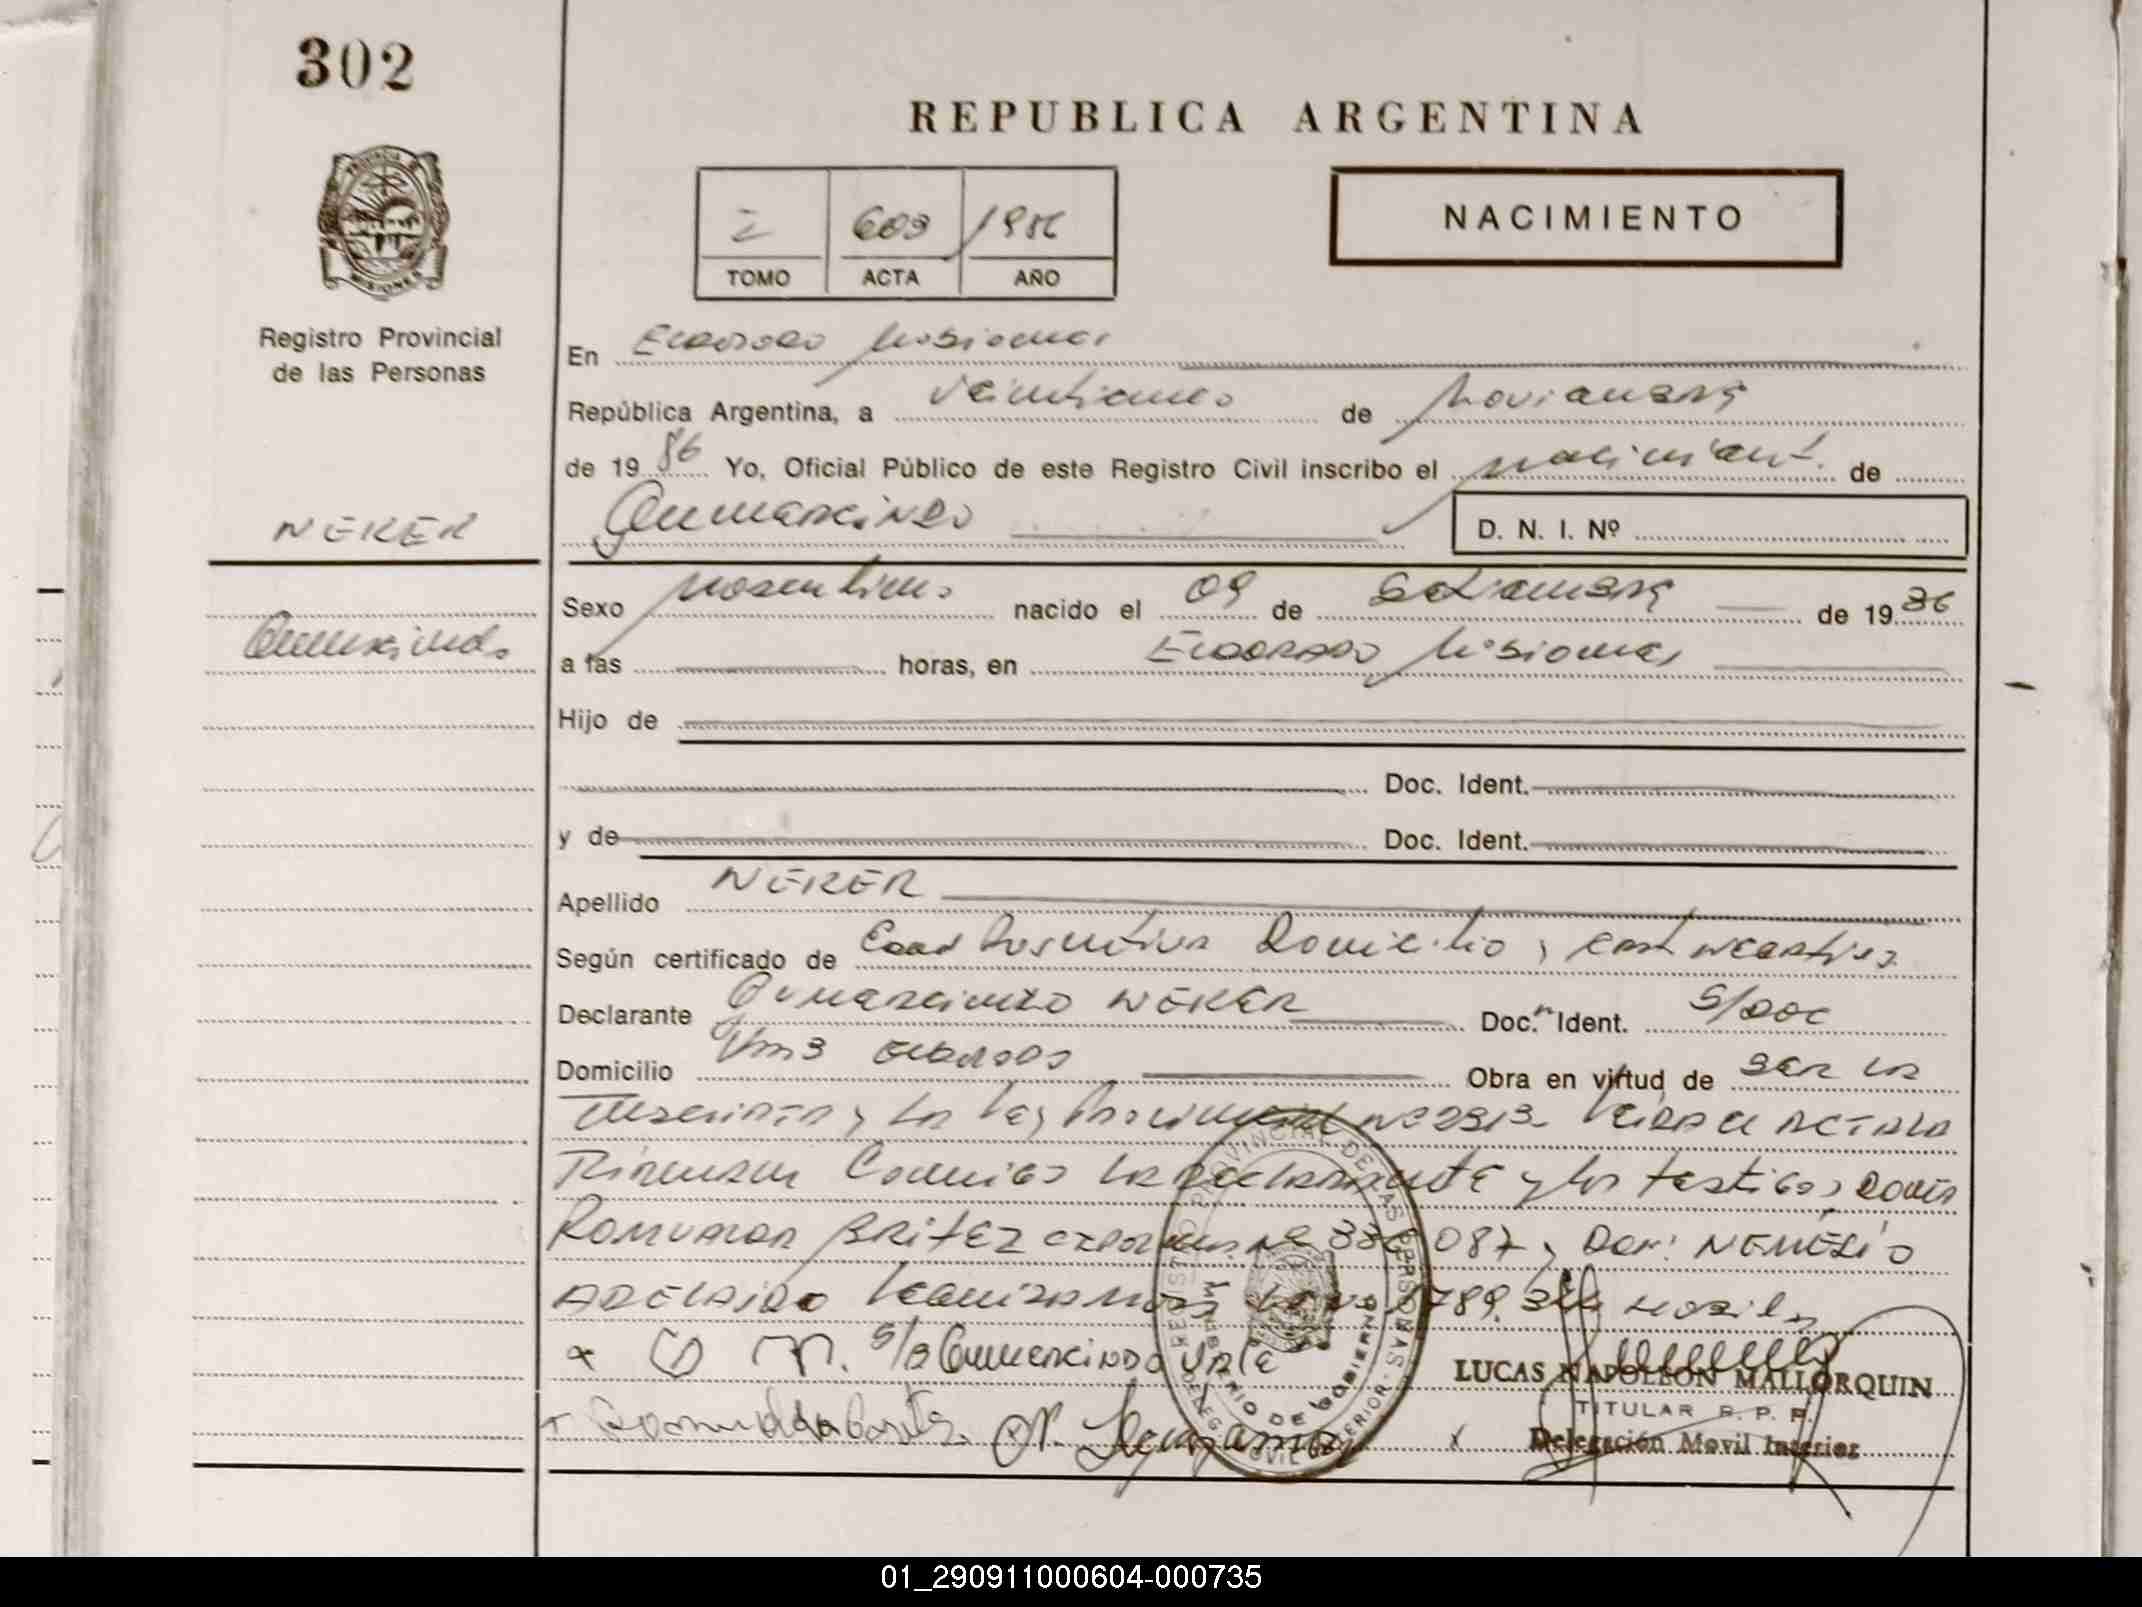 302
REPUBLICA ARGENTINA
PROVINCIA
MISIONES
I 609 1986
TOMO ACTA AÑO
NACIMIENTO
Registro Provincial
de las Personas
En Eldorado Misiones
República Argentina, a veintiuno de Noviembre
de 1986 Yo, Oficial Público de este Registro Civil inscribo el nacimient. de
NEKER
Gumercindo
D. N. I. Nº
Sexo Masculino nacido el 09 de Setiembre de 1936
Gumercindo
a las horas, en Eldorado Misiones
Hijo de
Doc. Ident.
y de Doc. Ident.
Apellido NEKER
Según certificado de Domicilio y
Declarante Gumercindo NEKER Doc. Ident. S/DOC
Domicilio Km3 Eldorado Obra en virtud de ser
y la Ley Provincial Nº 2313 Leida el ACTA la
Firman Conmigo la declarante y los testigos Doña
Romualda BRITEZ Nº 087 y Don: NEMESIO
ADELAIDO
Gumercindo VALE
LUCAS NAPOLEON MALLORQUIN
TITULAR R. P. P.
Delegación Movil Interior
REGISTRO PROVINCIAL DE LAS PERSONAS
MINISTERIO DE GOBIERNO
01_290911000604-000735